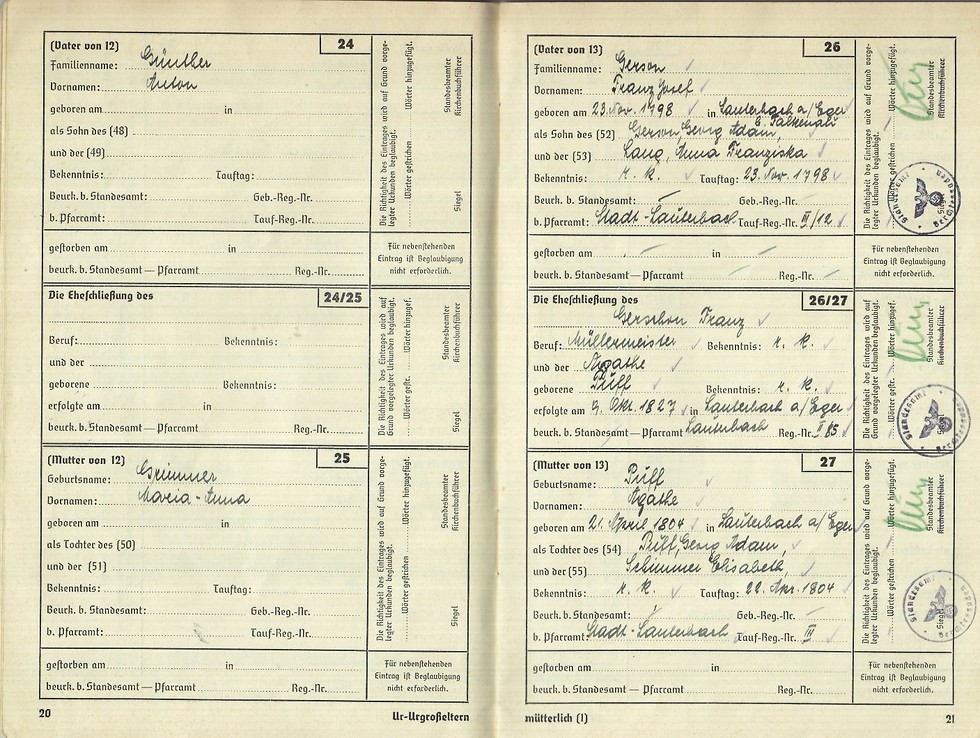 (Vater von 12) 24
Familienname: Günther
Vornamen: Anton
geboren am in
als Sohn des (48)
und der (49)
Bekenntnis: Tauftag:
Beurk. b. Standesamt: Geb.-Reg.-Nr.
b. Pfarramt: Tauf-Reg.-Nr.
Die Richtigkeit des Eintrages wird auf Grund vorge-
legter Urkunden beglaubigt.
Wörter gestrichen Wörter hinzugefügt.
Siegel
Standesbeamter
Kirchenbuchführer
gestorben am in
beurk. b. Standesamt — Pfarramt Reg.-Nr.
Für nebenstehenden
Eintrag ist Beglaubigung
nicht erforderlich.
Die Eheschließung des 24/25
Beruf: Bekenntnis:
und der
geborene Bekenntnis:
erfolgte am in
beurk. b. Standesamt — Pfarramt Reg.-Nr.
Die Richtigkeit des Eintrages wird auf
Grund vorgelegter Urkunden beglaubigt.
Wörter gestr. Wörter hinzugef.
Siegel
Standesbeamter
Kirchenbuchführer
(Mutter von 12) 25
Geburtsname: Grimmer
Vornamen: Maria-Anna
geboren am in
als Tochter des (50)
und der (51)
Bekenntnis: Tauftag:
Beurk. b. Standesamt: Geb.-Reg.-Nr.
b. Pfarramt: Tauf-Reg.-Nr.
Die Richtigkeit des Eintrages wird auf Grund vorge-
legter Urkunden beglaubigt.
Wörter gestrichen Wörter hinzugefügt.
Siegel
Standesbeamter
Kirchenbuchführer
gestorben am in
beurk. b. Standesamt — Pfarramt Reg.-Nr.
Für nebenstehenden
Eintrag ist Beglaubigung
nicht erforderlich.
20 Ur-Urgroßeltern
(Vater von 13) 26
Familienname: Gerson
Vornamen: Franz Josef
geboren am 23. Nov. 1798 in Lauterbach a/Eger
b. Falkenau
als Sohn des (52) Gerson, Georg Adam,
und der (53) Lang, Anna Franziska
Bekenntnis: r. k. Tauftag: 23. Nov. 1798
Beurk. b. Standesamt: Geb.-Reg.-Nr.
b. Pfarramt: Stadt-Lauterbach Tauf-Reg.-Nr. III/12
Die Richtigkeit des Eintrages wird auf Grund vorge-
legter Urkunden beglaubigt.
Wörter gestrichen Wörter hinzugefügt.
Siegel
Standesbeamter
Kirchenbuchführer
Standesamt
gestorben am in
beurk. b. Standesamt — Pfarramt Reg.-Nr.
Für nebenstehenden
Eintrag ist Beglaubigung
nicht erforderlich.
Die Eheschließung des 26/27
Gerschon Franz
Beruf: Müllermeister Bekenntnis: r. k.
und der Agathe
geborene Püff Bekenntnis: r. k.
erfolgte am 9. Okt. 1827 in Lauterbach a/Eger
beurk. b. Standesamt — Pfarramt Lauterbach Reg.-Nr. I 65
Die Richtigkeit des Eintrages wird auf
Grund vorgelegter Urkunden beglaubigt.
Wörter gestr. Wörter hinzugef.
Siegel
Standesbeamter
Kirchenbuchführer
Standesamt
(Mutter von 13) 27
Geburtsname: Püff
Vornamen: Agathe
geboren am 21. April 1804 in Lauterbach a/Eger
als Tochter des (54) Püff, Georg Adam,
und der (55) Schimmer Elisabeth,
Bekenntnis: r. k. Tauftag: 22. Apr. 1804
Beurk. b. Standesamt: Geb.-Reg.-Nr.
b. Pfarramt: Stadt-Lauterbach Tauf-Reg.-Nr. III
Die Richtigkeit des Eintrages wird auf Grund vorge-
legter Urkunden beglaubigt.
Wörter gestrichen Wörter hinzugefügt.
Siegel
Standesbeamter
Kirchenbuchführer
Standesamt
gestorben am in
beurk. b. Standesamt — Pfarramt Reg.-Nr.
Für nebenstehenden
Eintrag ist Beglaubigung
nicht erforderlich.
mütterlich (I) 21